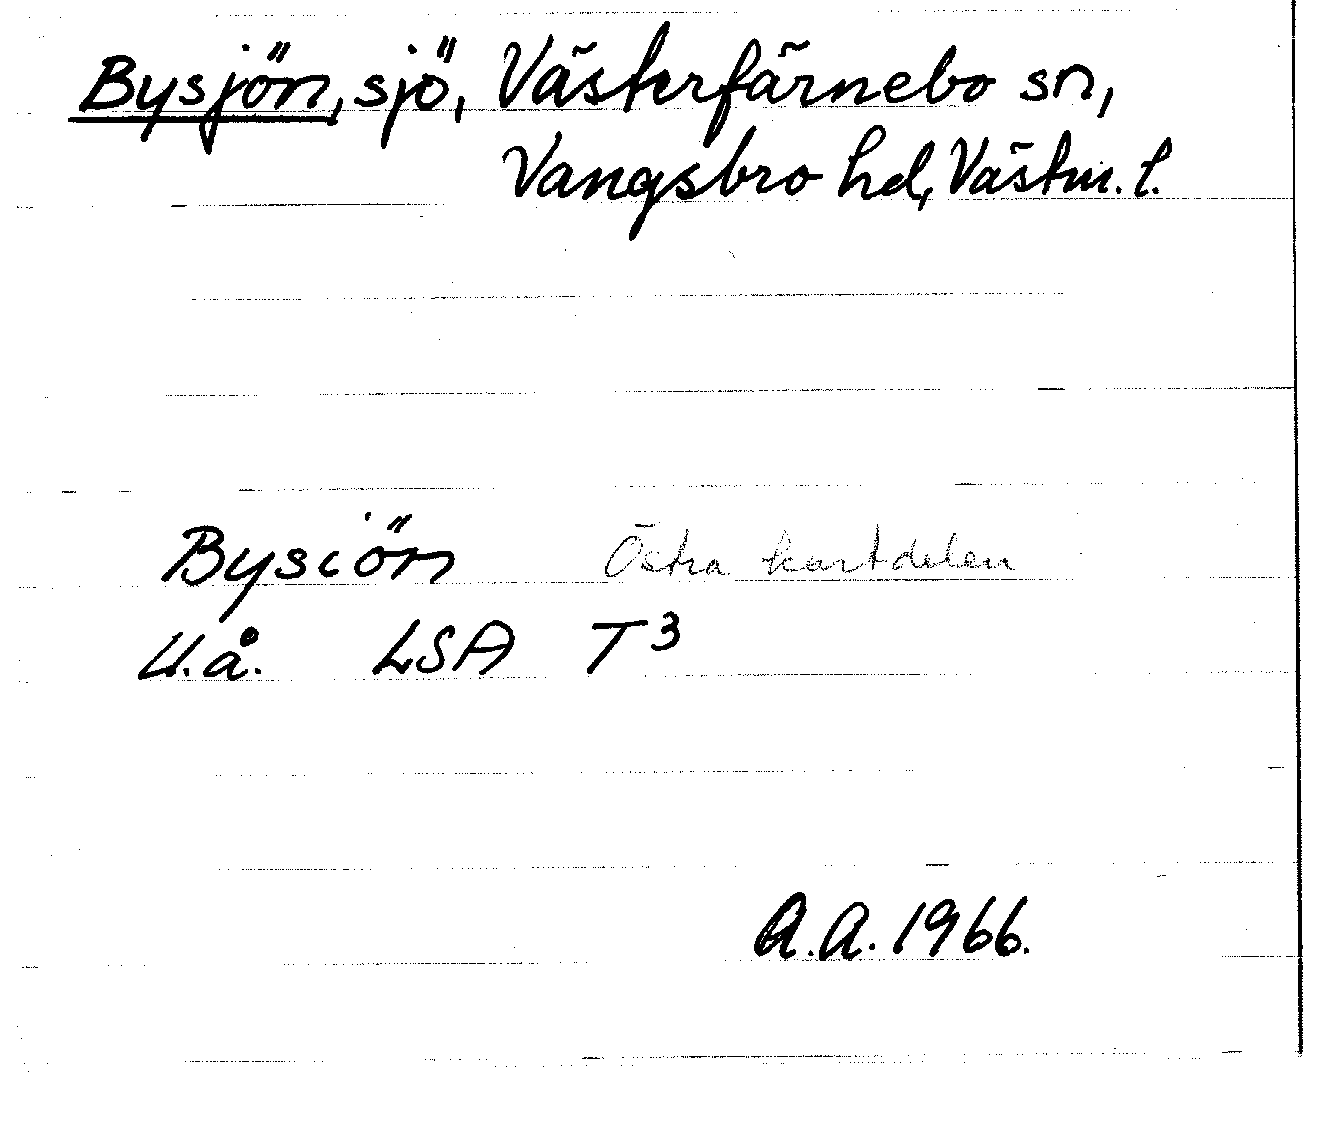 Bysjön, sjö, Västerfärnebo sn,
Vangsbro hd, Västm. l.
Bysiön Östra kartdelen
U.å. LSA T3
A.A. 1966.